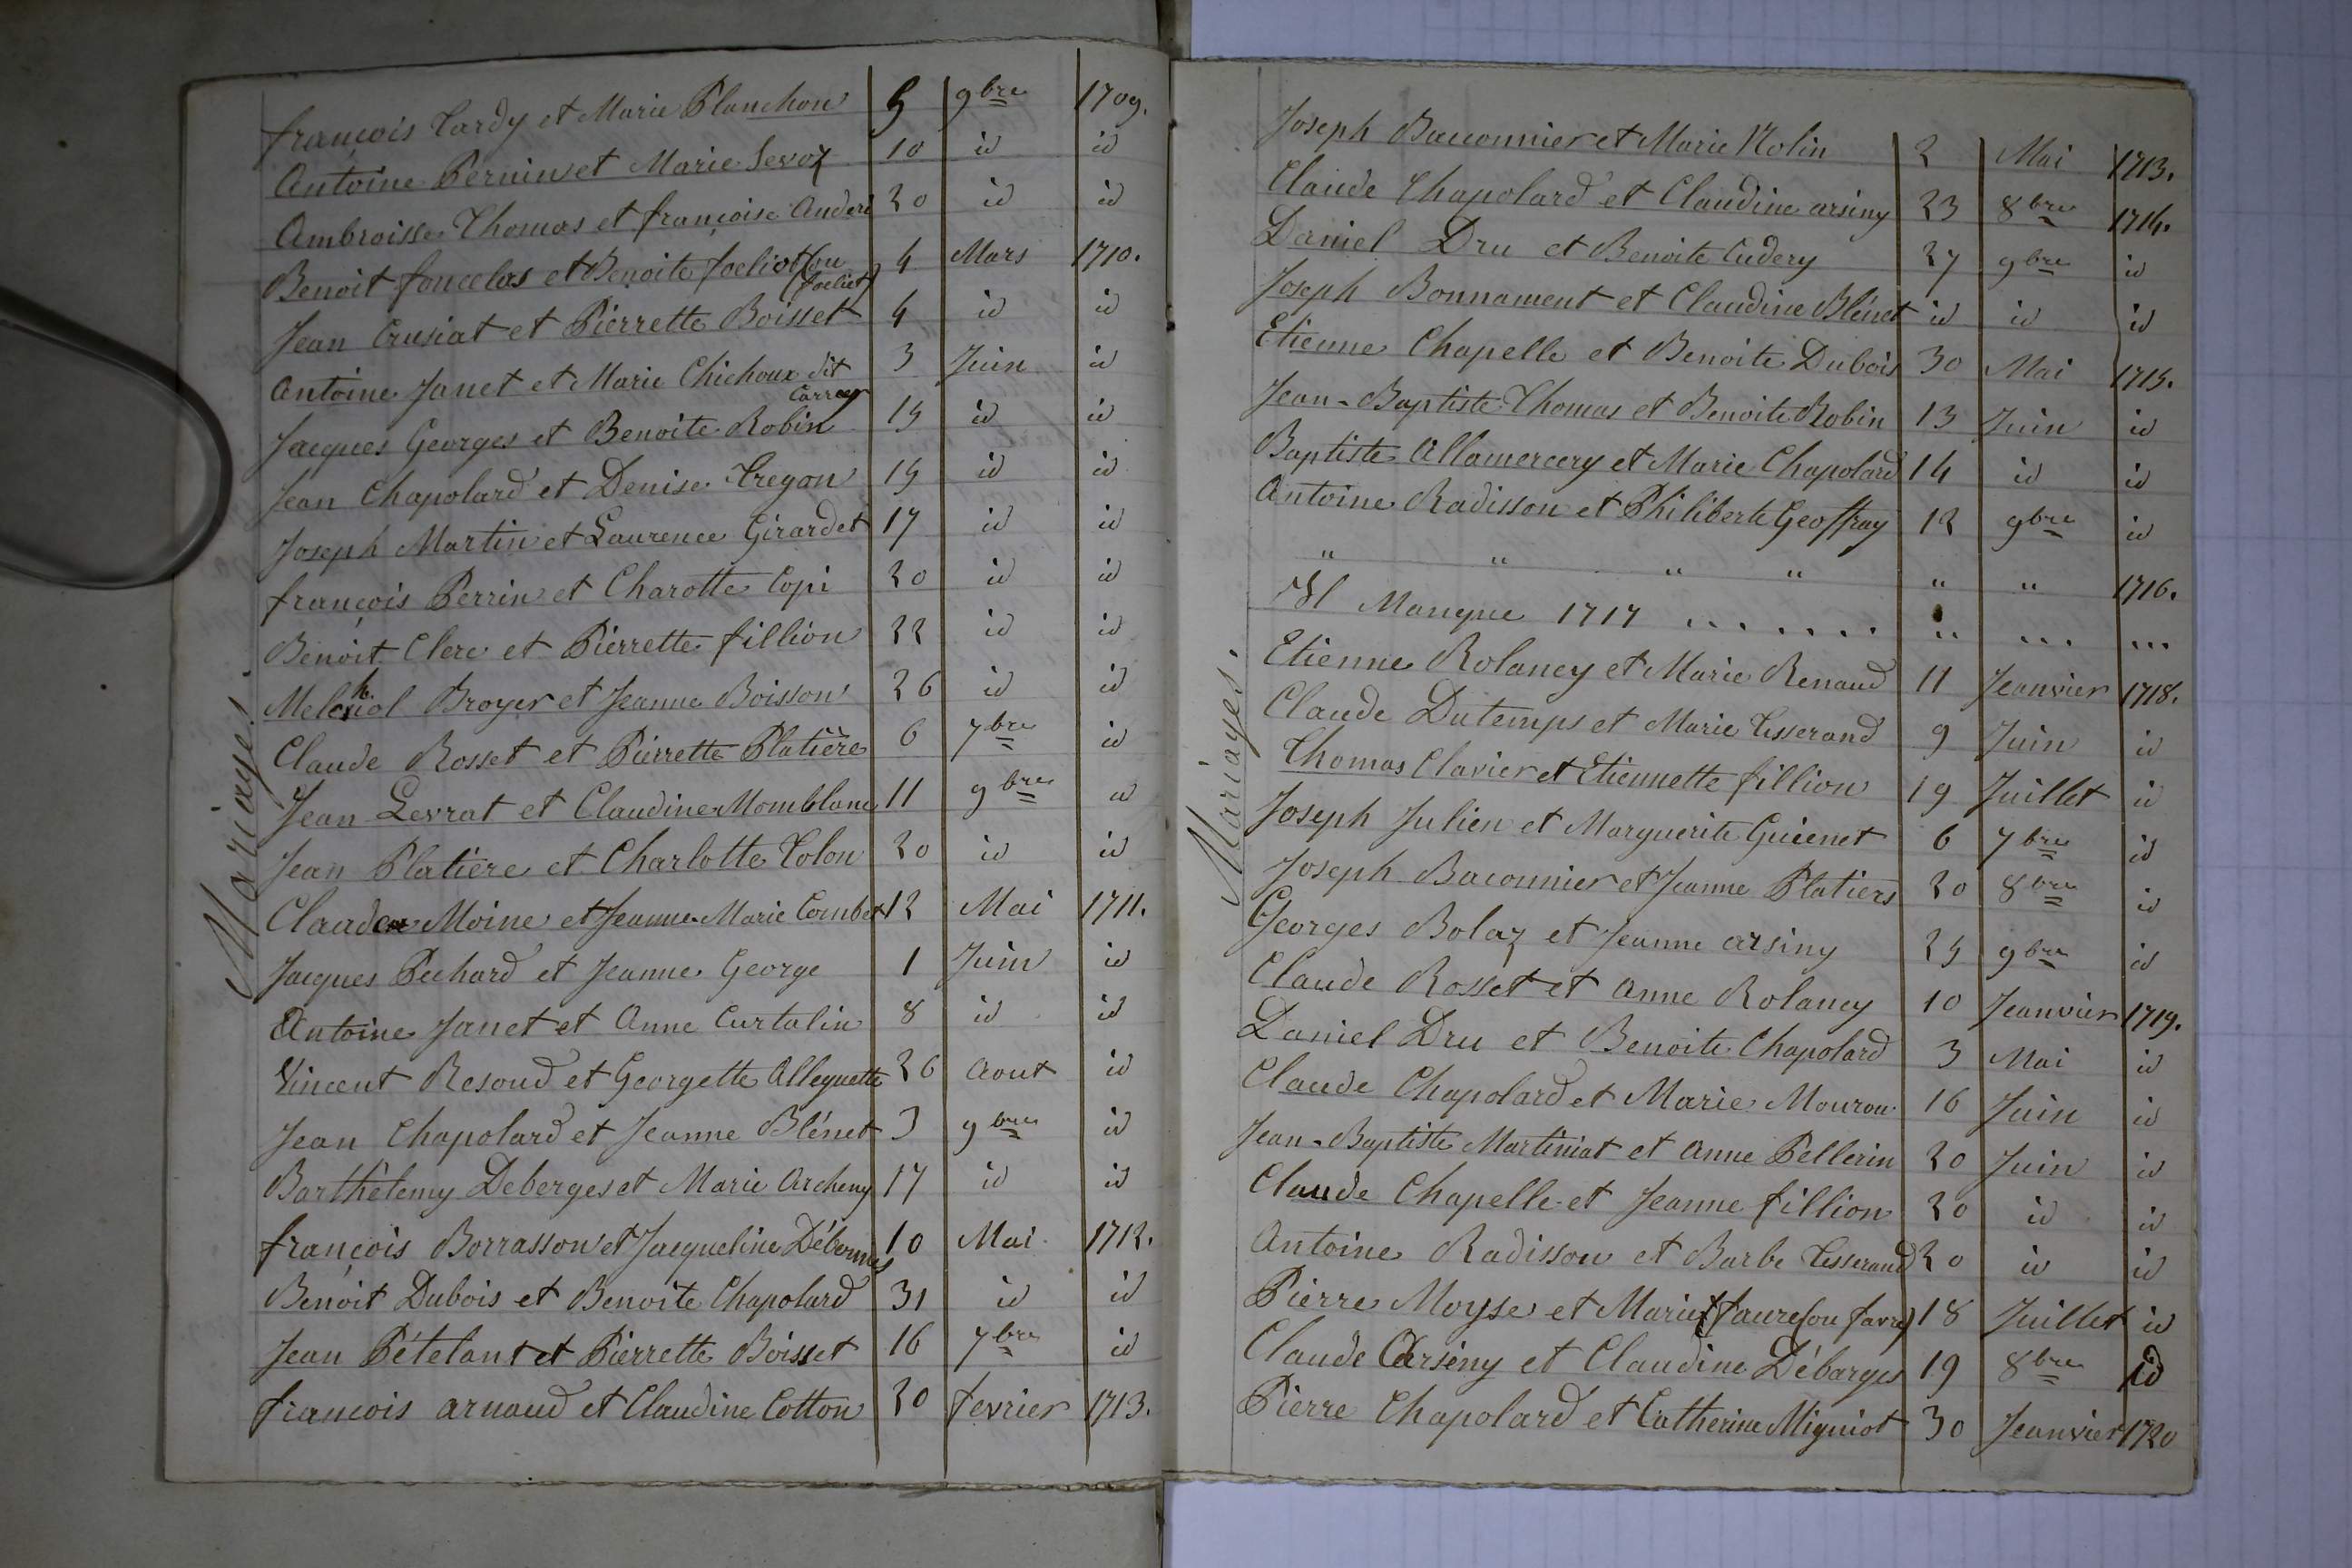 Mariage.
françois Tardy et Marie Planchon 5 9bre 1709.
Antoine Pernin et Marie Sevoz 10 id id
Ambroisse Thomas et françoise Auderi 20 id id
Benoit foncelas et Benoite Joeliot (ou 4 Mars 1710.
Joeliet)
Jean Crusiat et Pierrette Boisset 4 id id
Antoine Janet et Marie Chichoux dit 3 Juin id
Carray
Jacques Georges et Benoite Robin 15 id id
Jean Chapolard et Denise Tregon 15 id id
Joseph Martin et Laurence Girardet 17 id id
françois Perrin et Charotte Copi 20 id id
Benoit Clerc et Pierrette fillion 22 id id
Melchiol Broyer et Jeanne Boisson 26 id id
Claude Rosset et Pierrette Platière 6 7bre id
Jean Levrat et Claudine Momblanc 11 9bre id
Jean Platière et Charlotte Tolon 20 id id
Claude Moine et Jeanne Marie Combet 12 Mai 1711.
Jacques Pechard et Jeanne George 1 Juin id
Antoine Janet et Anne Curtalin 8 id id
Vincent Resoud et Georgette Alleguette 26 Aout id
Jean Chapolard et Jeanne Blénet 3 9bre id
Barthélemy Deberges et Marie Archeny 17 id id
françois Borrasson et Jacqueline Débornes 10 Mai 1712.
Benoit Dubois et Benoite Chapolard 31 id id
Jean Pételant et Pierrette Boisset 16 7bre id
francois arnaud et Claudine Cotton 20 fevrier 1713.
Mariages.
Joseph Bacconnier et Marie Molin 2 Mai 1713.
Claude Chapolard et Claudine arsiny 23 8bre 1714.
Daniel Dru et Benoite Cudery 27 9bre id
Joseph Bonnament et Claudine Blénet id id id
Etienne Chapelle et Benoite Dubois 30 Mai 1715.
Jean-Baptiste Thomas et Benoite Robin 13 Juin id
Baptiste Allamercery et Marie Chapolard 14 id id
Antoine Radisson et Philiberte Geoffray 12 9bre id
" " " " " " 1716.
Il Manque 1717 ....... .. ... ...
Etienne Rolancy et Marie Renaud 11 Jeanvier 1718.
Claude Dutemps et Marie Tisserand 9 Juin id
Thomas Clavier et Etiennette fillion 19 Juillet id
Joseph Julien et Marguerite Guienet 6 7bre id
Joseph Baconnier et Jeanne Platiers 20 8bre id
Georges Bolaz et Jeanne arsiny 25 9bre id
Claude Rosset et Anne Rolancy 10 Jeanvier 1719.
Daniel Dru et Benoite Chapolard 3 Mai id
Claude Chapolard et Marie Mourou 16 Juin id
Jean-Baptiste Martiniat et Anne Pellerin 20 Juin id
Claude Chapelle et Jeanne fillion 20 id id
Antoine Radisson et Barbe Tisserand 20 id id
Pierre Moyse et Marie faure (ou favre) 18 Juillet id
Claude Arsény et Claudine Débarges 19 8bre id
Pierre Chapolard et Catherine Migniot 30 Jeanvier 1720